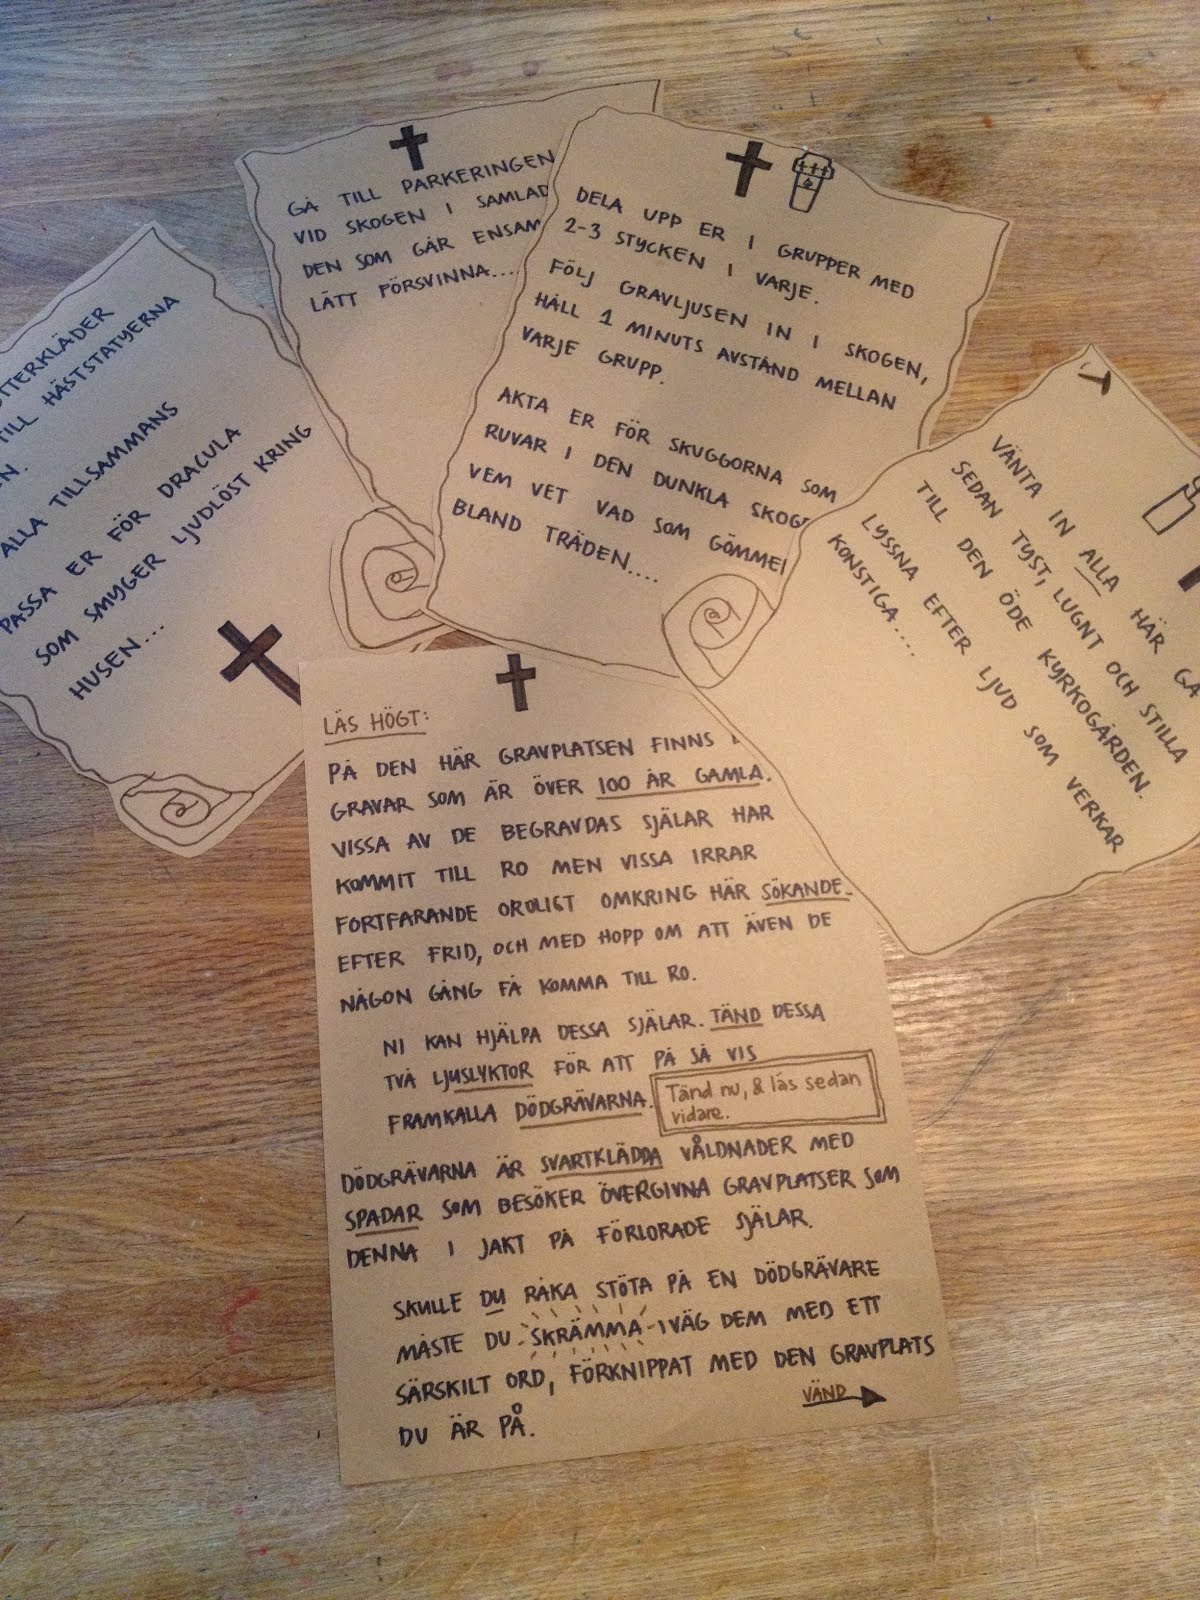 TTERKLÄDER
TILL HÄSTSTATYERNA
EN.
ALLA TILLSAMMANS
PASSA ER FÖR DRACULA
SOM SMYGER LJUDLÖST KRING
HUSEN...
GÅ TILL PARKERINGEN
VID SKOGEN I SAMLAD
DEN SOM GÅR ENSAM
LÄTT FÖRSVINNA...
DELA UPP ER I GRUPPER MED
2-3 STYCKEN I VARJE.
FÖLJ GRAVLJUSEN IN I SKOGEN,
HÅLL 1 MINUTS AVSTÅND MELLAN
VARJE GRUPP.
AKTA ER FÖR SKUGGORNA SOM
RUVAR I DEN DUNKLA SKOGE
VEM VET VAD SOM GÖMMER
BLAND TRÄDEN....
VÄNTA IN ALLA HÄR GÅ
SEDAN TYST, LUGNT OCH STILLA
TILL DEN ÖDE KYRKOGÅRDEN.
LYSSNA EFTER LJUD SOM VERKAR
KONSTIGA....
LÄS HÖGT:
PÅ DEN HÄR GRAVPLATSEN FINNS
GRAVAR SOM ÄR ÖVER 100 ÅR GAMLA.
VISSA AV DE BEGRAVDAS SJÄLAR HAR
KOMMIT TILL RO MEN VISSA IRRAR
FORTFARANDE OROLIGT OMKRING HÄR SÖKANDE
EFTER FRID, OCH MED HOPP OM ATT ÄVEN DE
NÅGON GÅNG FÅ KOMMA TILL RO.
NI KAN HJÄLPA DESSA SJÄLAR. TÄND DESSA
TVÅ LJUSLYKTOR FÖR ATT PÅ SÅ VIS
FRAMKALLA DÖDGRÄVARNA. Tänd nu, & läs sedan
vidare.
DÖDGRÄVARNA ÄR SVARTKLÄDDA VÅLDNADER MED
SPADAR SOM BESÖKER ÖVERGIVNA GRAVPLATSER SOM
DENNA I JAKT PÅ FÖRLORADE SJÄLAR.
SKULLE DU RÅKA STÖTA PÅ EN DÖDGRÄVARE
MÅSTE DU SKRÄMMA IVÄG DEM MED ETT
SÄRSKILT ORD, FÖRKNIPPAT MED DEN GRAVPLATS
DU ÄR PÅ.
VÄND